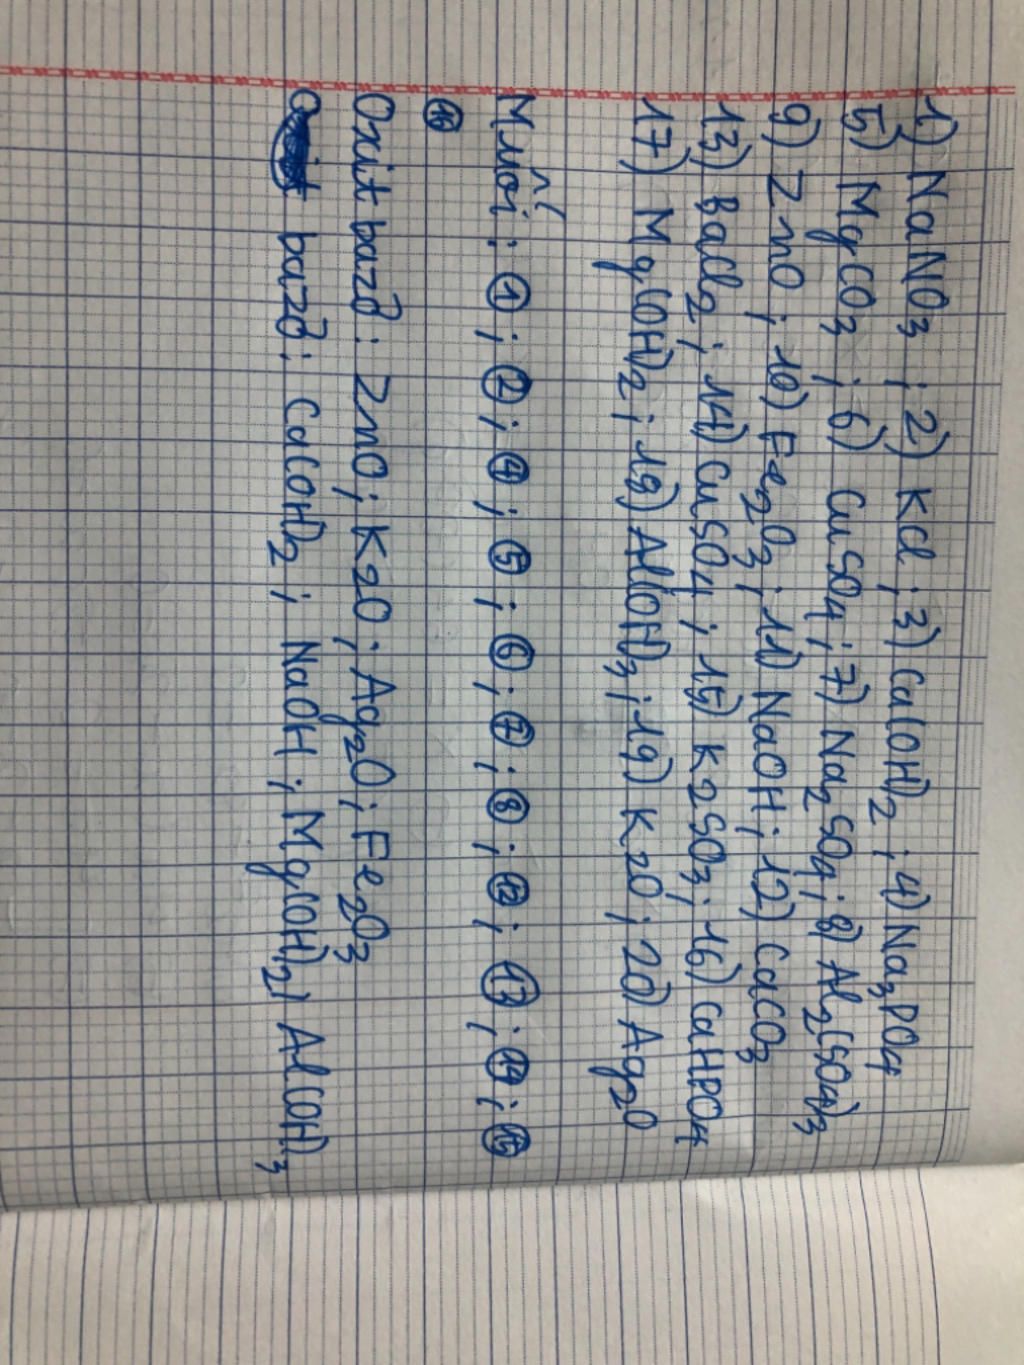 1) NaNO3 ; 2) KCl ; 3) Cu(OH)2 ; 4) Na3PO4
5) MgCO3 ; 6) CuSO4 ; 7) Na2SO4 ; 8) Al2(SO4)3
9) ZnO ; 10) Fe2O3 ; 11) NaOH ; 12) CaCO3
13) BaCl2 ; 14) CuSO4 ; 15) K2SO3 ; 16) CaHPO4
17) Mg(OH)2 ; 18) Al(OH)3 ; 19) K2O ; 20) Ag2O
Muối : 1 ; 2 ; 4 ; 5 ; 6 ; 7 ; 8 ; 12 ; 13 ; 14 ; 15
16
Oxit bazơ : ZnO ; K2O ; Ag2O ; Fe2O3
bazơ : Ca(OH)2 ; NaOH ; Mg(OH)2 ) Al(OH)3